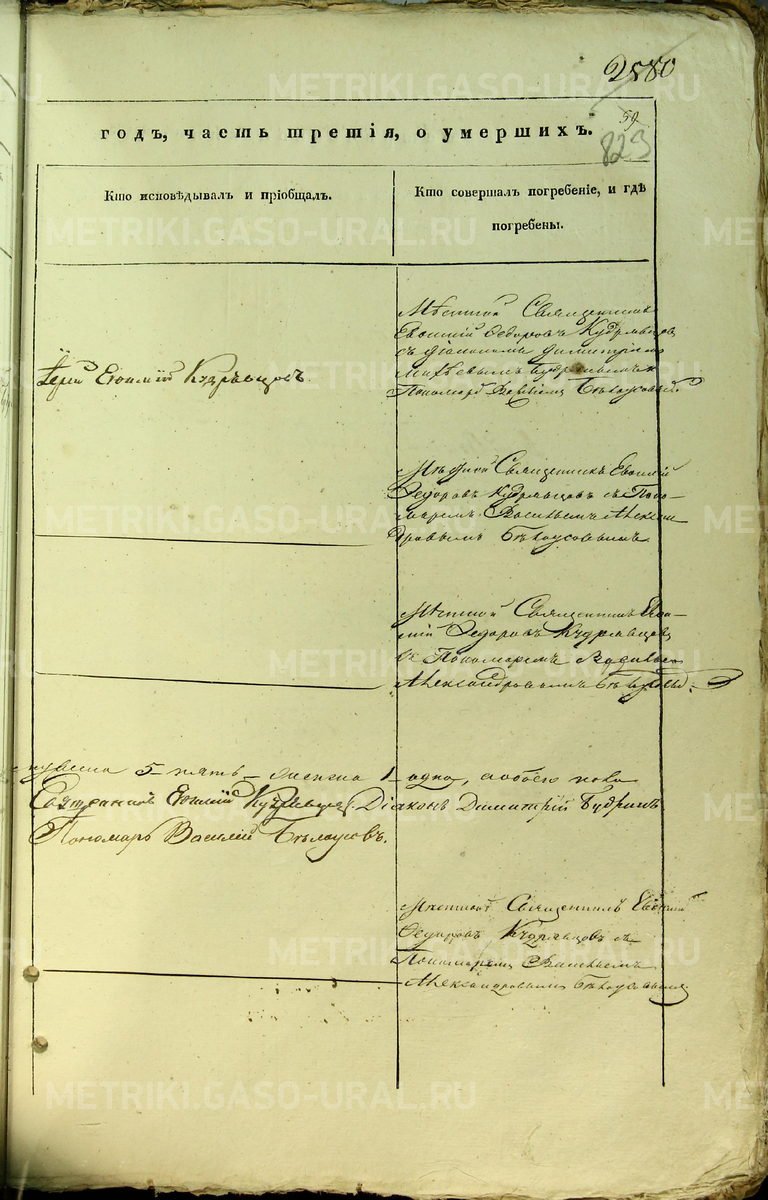 2580
годъ, часть третія, о умершихъ.
59
823
Кто исповѣдывалъ и пріобщалъ.
Кто совершалъ погребеніе, и гдѣ
погребены.
Іерей Евѳимій Кудрявцовъ
Мѣстной Священникъ
Евѳимій Ѳедоровъ Кудрявцовъ
съ діакономъ Димитріемъ
Будринымъ и
Пономаремъ Бѣлоусовымъ
Мѣстной Священникъ Евѳимій
Ѳедоровъ Кудрявцовъ съ Поно-
маремъ Васильемъ Алексан
дровымъ Бѣлоусовымъ.
Мѣстной Священникъ Евѳи-
мій Ѳедоровъ Кудрявцовъ
съ Пономаремъ Васильемъ
Александровымъ Бѣлоусовы
5 пять 1 одна, обоего пола
Евѳимій Кудрявцовъ Діаконъ Димитрій Будринъ.
Пономарь Василій Бѣлоусовъ.
Мѣстной Священникъ Евѳимій
Ѳедоровъ Кудрявцовъ съ
Пономаремъ Васильемъ
Александровымъ Бѣлоусовымъ
METRIKI.GASO-URAL.RU